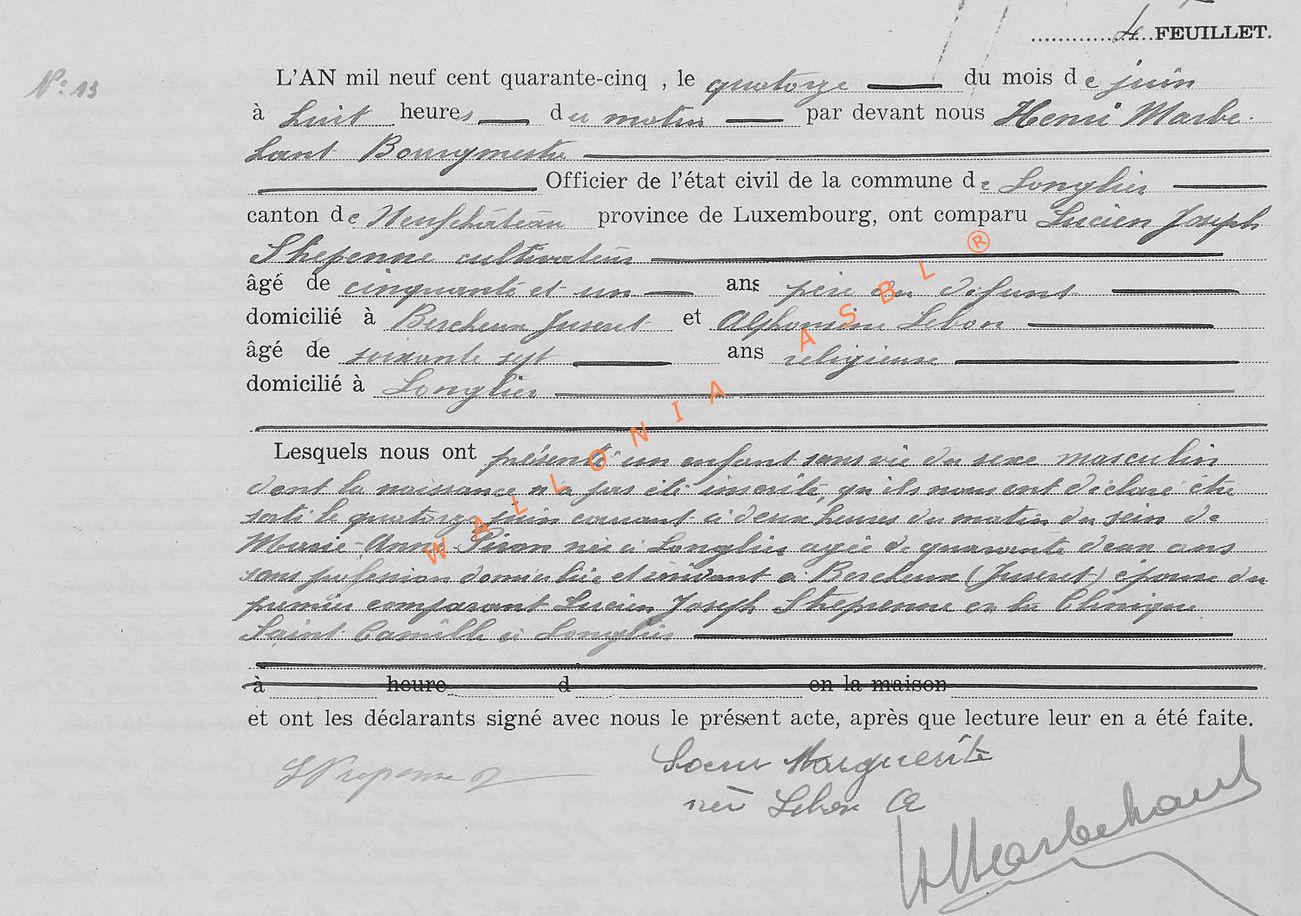 4 FEUILLET.
N° 13
L'AN mil neuf cent quarante-cinq , le quatorze du mois de juin
à huit heures du matin par devant nous Henri Marbe-
hant Bourgmestre
Officier de l'état civil de la commune de Longlier
canton de Neufchâteau province de Luxembourg, ont comparu Lucien Joseph
Shepenne cultivateur
âgé de cinquante et un ans père du défunt
domicilié à Bercheux Juseret et Alphonsine Lebon
âgé de soixante sept ans religieuse
domicilié à Longlier
Lesquels nous ont présenté un enfant sans vie du sexe masculin
dont la naissance n'a pas été inscrite, qu'ils nous ont déclaré être
sorti le quatorze juin courant à deux heures du matin du sein de
Marie-Anne Piron née à Longlier agée de quarante deux ans
sans profession domiciliée et vivant à Bercheux (Juseret) épouse du
premier comparant Lucien Joseph Shepenne en la Clinique
Saint Camille à Longlier
à heure d en la maison
et ont les déclarants signé avec nous le présent acte, après que lecture leur en a été faite.
Soeur Marguerite
née Lebon A
HMarbehant
WALLONIA ASBL ®